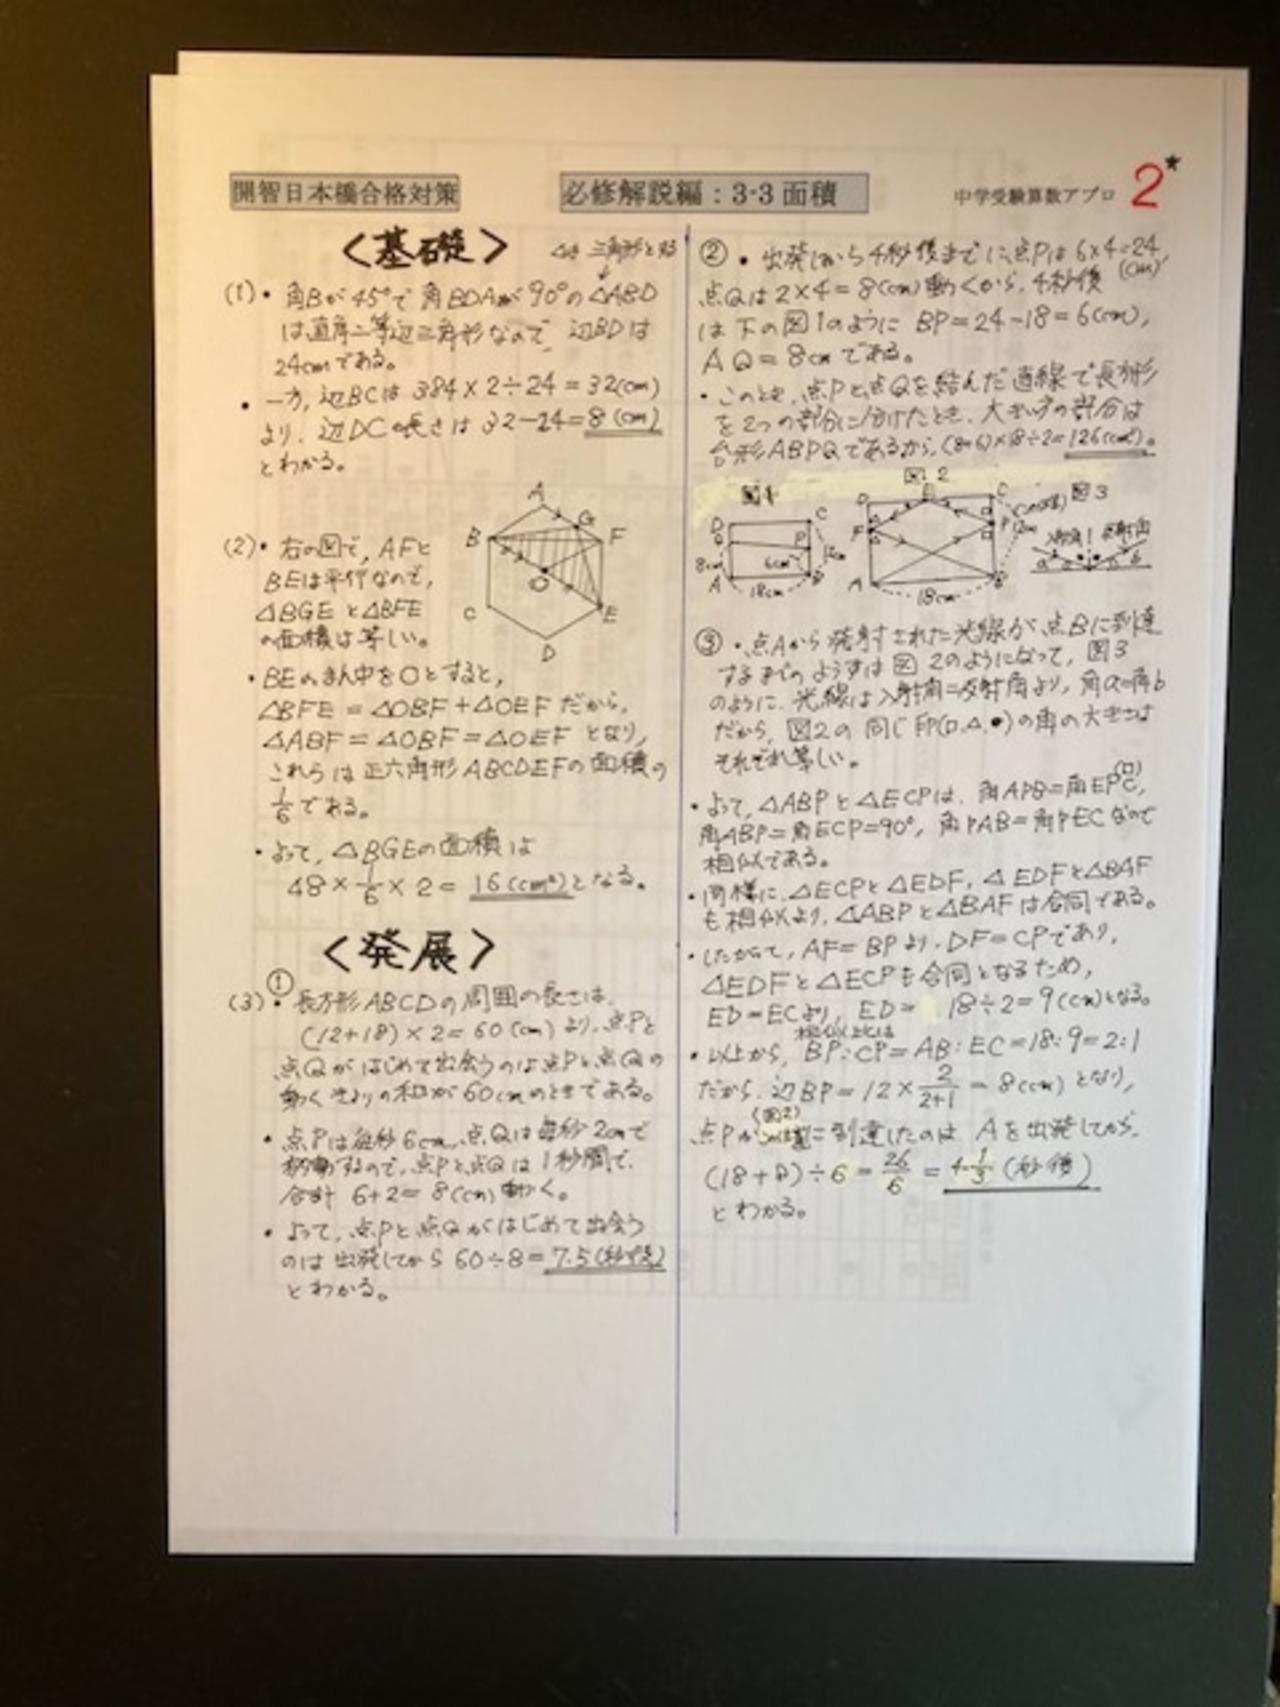 開智日本橋合格対策
必修解説編：3-3 面積
中学受験算数アプロ
2*
<基礎>
△は 三角形とする
(1)・角Bが45°で 角BDAが90°の△ABD
は直角二等辺三角形なので, 辺BDは
24cmである。
・一方, 辺BCは 384×2÷24=32(cm)
より, 辺DCの長さは 32-24=8(cm)
とわかる。
(2)・右の図で, AFと
BEは平行なので,
△BGEと△BFE
の面積は等しい。
A
G
B
F
O
C
E
D
・BEのまん中をOとすると,
△BFE=△OBF+△OEFだから,
△ABF=△OBF=△OEFとなり,
これらは正六角形ABCDEFの面積の
1/6である。
・よって, △BGEの面積は
48×1/6×2=16(cm²)となる。
<発展>
(3)①・長方形ABCDの周囲の長さは,
(12+18)×2=60(cm)より, 点Pと
点Qがはじめて出会うのは点Pと点Qの
動く きょりの和が60cmのときである。
・点Pは毎秒6cm, 点Qは毎秒2cmで
移動するので, 点Pと点Qは1秒間で,
合計 6+2=8(cm)動く。
・よって, 点Pと点Qがはじめて出会う
のは 出発してから 60÷8=7.5(秒後)
とわかる。
②・出発してから4秒後までに, 点Pは6×4=24(cm),
点Qは2×4=8(cm)動くから, 4秒後
は下の図1のように BP=24-18=6(cm),
AQ=8cmである。
・このとき, 点Pと点Qを結んだ直線で長方形
を2つの部分に分けたとき, 大きい方の部分は
台形ABPQであるから, (8+6)×18÷2=126(cm²)。
図1
図2
図3
D
C
Q
P
8cm
6cm
12cm
A
B
18cm
D
E
C
F
P
12cm
A
B
18cm
入射角
反射角
a
b
③・点Aから発射された光線が点Bに到達
するまでのようすは図2のようになって, 図3
のように, 光線は入射角=反射角より, 角a=角b
だから, 図2の同じ印(□, △, ●)の角の大きさは
それぞれ等しい。
・よって, △ABPと△ECPは, 角APB=角EPC(□),
角ABP=角ECP=90°, 角PAB=角PECなので
相似である。
・同様に, △ECPと△EDF, △EDFと△BAF
も相似より, △ABPと△BAFは合同である。
・したがって, AF=BPより, DF=CPであり,
△EDFと△ECPも合同となるため,
ED=ECより, ED= 18÷2=9(cm)となる。
相似比は
・以上から, BP:CP=AB:EC=18:9=2:1
だから, 辺BP=12×2/2+1=8(cm)となり,
(図2)
点Pが に到達したのは Aを出発してから,
(18+8)÷6=26/6=4 1/3(秒後)
とわかる。